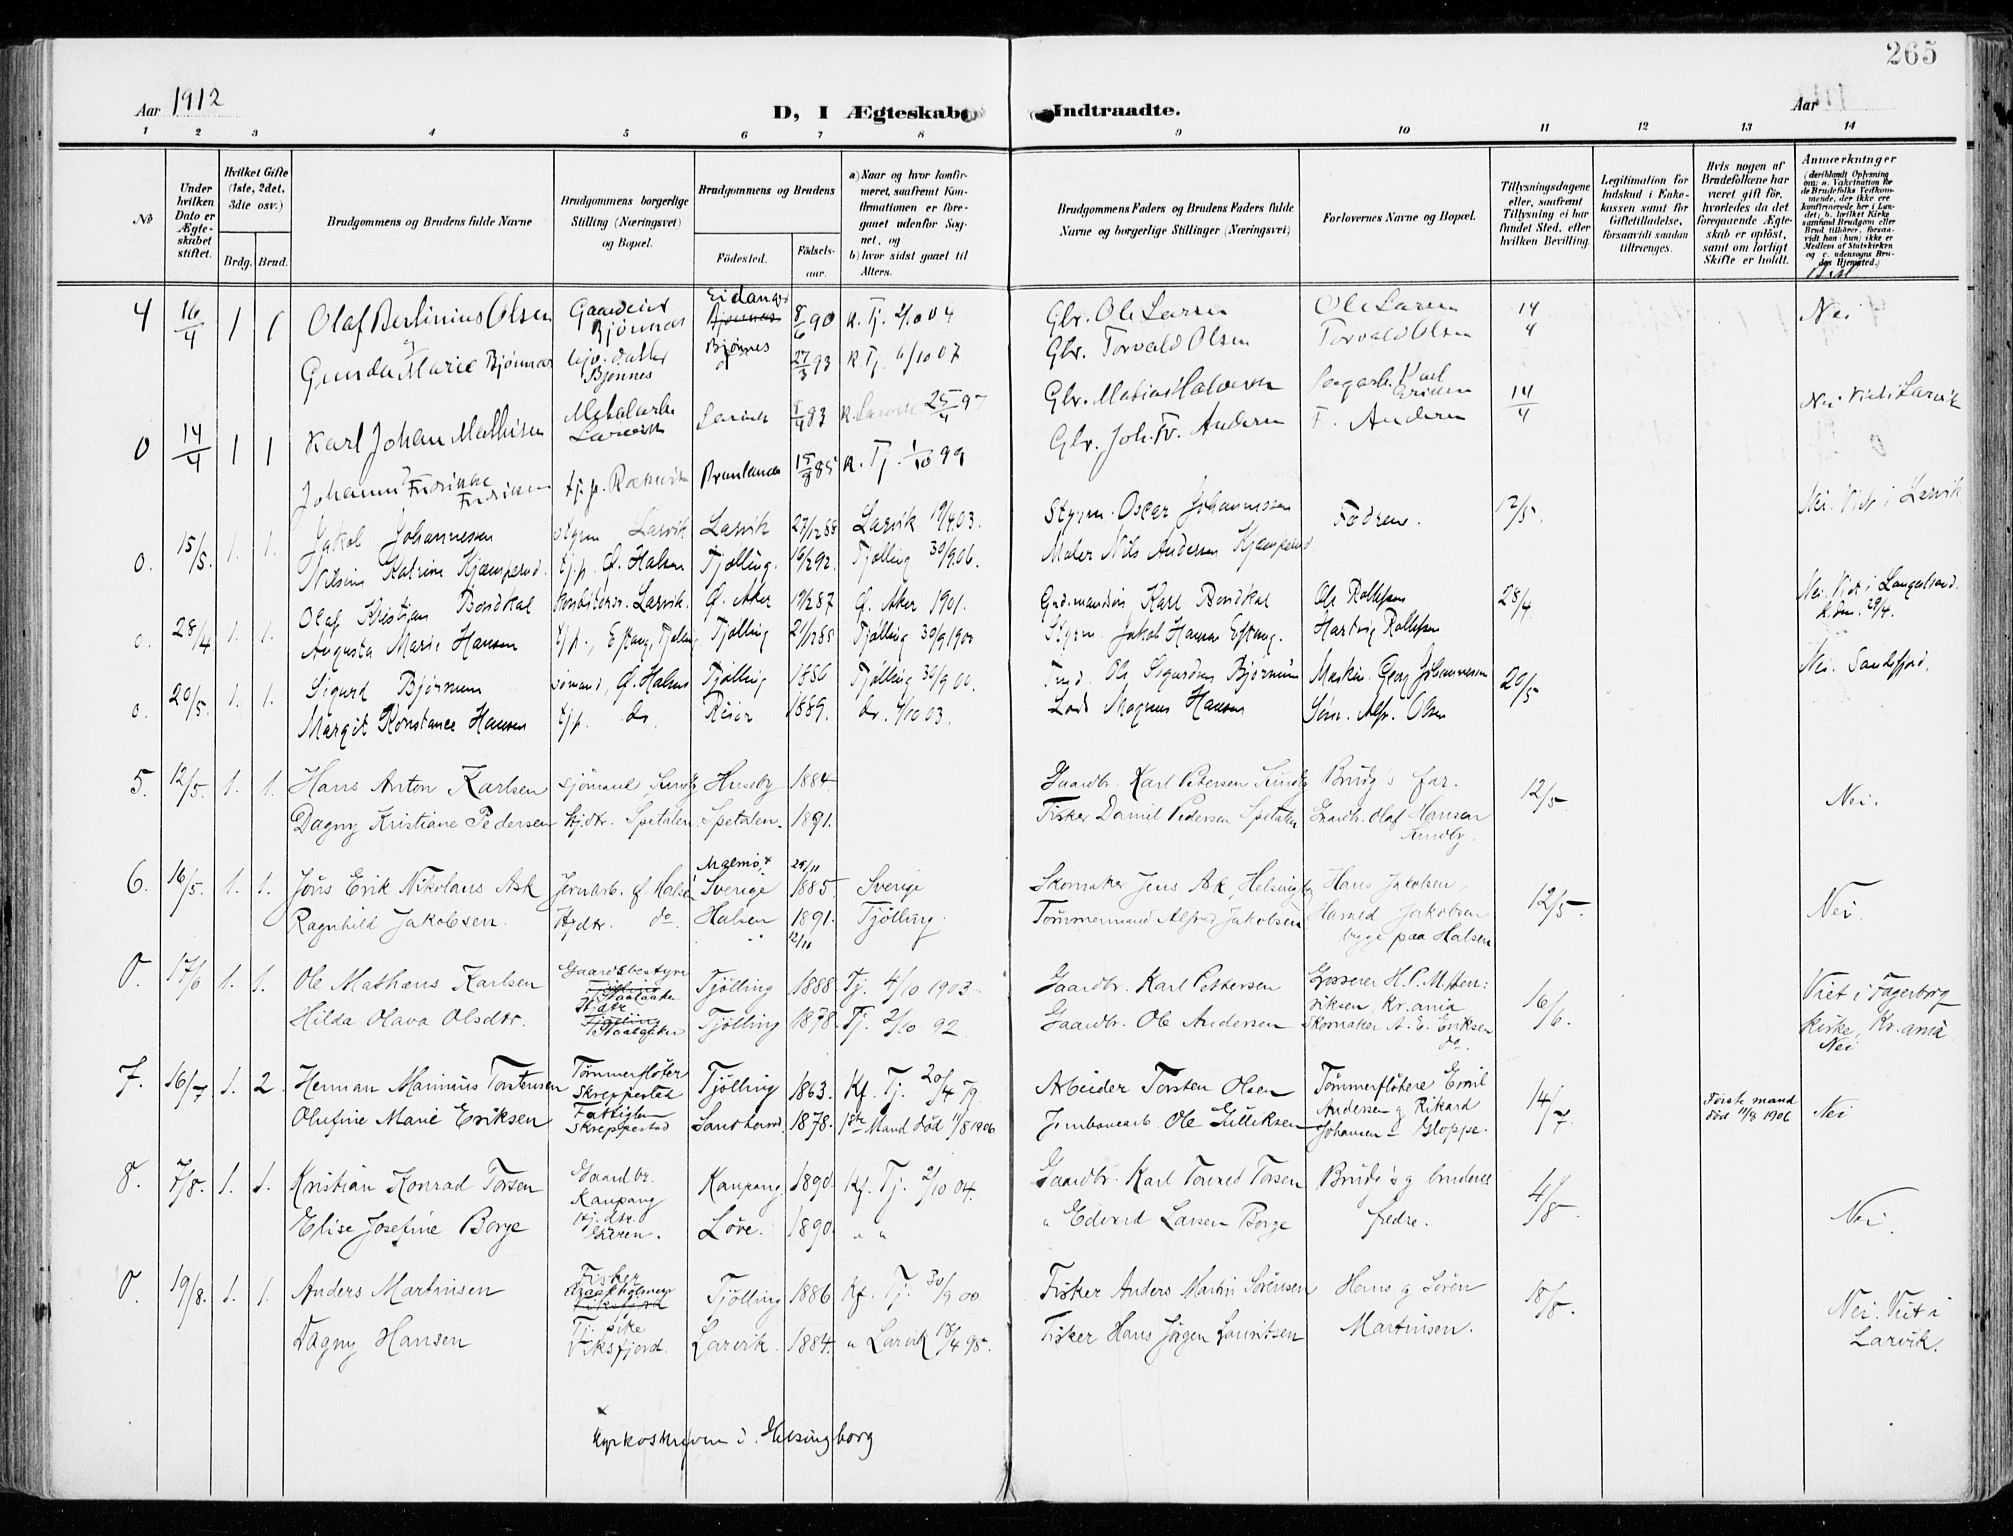 265
Aar 1912
D, I Ægteskab
Indtraadte.
Aar
1 2 3 4 5 6 7 8 9 10 11 12 13 14
No
Under hvilken Dato er Ægteskabet stiftet.
Hvilket Gifte (1ste, 2det, 3die osv.)
Brdg. Brud.
Brudgommens og Brudens fulde Navne
Brudgommens borgerlige Stilling (Næringsvei) og Bopæl.
Brudgommens og Brudens
Födested.
Födselsaar.
a) Naar og hvor konfirmeret, saafremt Konfirmationen er foregaaet udenfor Sognet, og
b) hvor sidst gaaet til Alters.
Brudgommens Faders og Brudens Faders fulde Navne og borgerlige Stillinger (Næringsvei)
Forlovernes Navne og Bopæl.
Tillysningsdagene eller, saafremt Tillysning ei har fundet Sted, efter hvilken Bevilling.
Legitimation for Indskud i Enkekassen samt for Giftetilladelse, forsaavidt saadan tiltrænges.
Hvis nogen af Brudefolkene har været gift för, hvorledes da det foregaaende Ægteskab er oplöst, samt om lovligt Skifte er holdt.
Anmærkninger (deriblandt Oplysning om: a. Vakcination for de Brudefolks Vedkommende, der ikke ere konfirmerede her i Landet; b. hvilket Kirkesamfund Brudgom eller Brud tilhörer, forsaavidt han (hun) ikke er Medlem af Statskirken og c. udensogns Brudes Hjemsted.)
4 16/4 1 1 Olaf Berlinius Olsen Bjönnas Eidanger 8/6 90 K. Tj. 2/10 04 Gbr. Ole Larsen Ole Larsen 14/4 Nei
og
Gunda Marie Bjönnes Bjönnes Bjönnes 27/3 93 K. Tj. 6/10 07 Gbr. Torvald Olsen Torvald Olsen
0 14/4 1 1 Karl Johan Mathisen Larvik Larvik 83 K. Larvik 25/4 97 Gbr. Matias Halvorsen 14/4 Nei Viet i Larvik
Fredrikke 85 K. Tj. 1/10 99 Gbr. Joh. Fr. Andersen F. Andersen
0. 15/5. 1. 1. Jakob Johannessen Styrm Larvik Larvik 27/12 88 Larvik 19/4 03. Styrm. Oscar Johannessen Fædrene. 12/5. Nei. Viet i Larvik
Nilsine Katrine Kjæmperud. Tj.p. Ö. Halsen Tjölling. 16/2 92. Tjölling 30/9 06. Maler Nils Andersen Kjæmperud
0. 28/4 1. 1. Olaf Kristian Bondkal Larvik. Ö. Aker 19/2 87 Ö. Aker 1901. Karl Bondkal Ole Rollefsen 28/4. Nei. Viet i Langestrand K. den 29/4.
Augusta Marie Hansen Tj.p., Eftang, Tjölling Tjölling 21/12 85 Tjölling 30/9 1900 Styrm. Jakob Hansen Eftang. Hartvig Rollefsen
0. 20/5. 1. 1. Sigurd Bjørnum Sömand, Ö. Halsen Tjölling 1886 Tjölling 30/9 00. Ole Sigurdsen Bjørnum Maskin. Georg Johannessen 20/5 Nei. Sandefjord.
Margit Konstance Hansen Tj.p. do. Risör 1889. do. 4/10 03. Lods Magnus Hansen Söm. Alfr. Olsen
5. 12/5. 1. 1. Hans Anton Karlsen Sjömand Sundby Huseby 1884. Gaardbr. Karl Petersen Sundby Brudg's far. 12/5 Nei.
Dagny Kristiane Pedersen Hjdtr. Spetalen Spetalen. 1891. Fisker Daniel Pedersen Spetalen Gaardbr. Olaf Hansen Sundby.
6. 16/5. 1. 1. Jöns Erik Nikolaus Ask Jernarb. Ö Halsen Malmö, x Sverige 29/11 1885 Sverige Skomaker Jens Ask, Helsingborg Hans Jakobsen, 12/5. Nei.
Ragnhild Jakobsen. Hjdtr. do Halsen 1891. 12/11 Tjölling. Tömmermand Alfred Jakobsen Harald Jakobsen begge paa Halsen
0. 17/6 1. 1. Ole Mathæus Karlsen Gaardsbestyrer Tjölling 1888. Tj. 4/10 1903. Gaardbr. Karl Pettersen Grosserer H. P. M. Henriksen Kr.ania 16/6. Viet i Fagerborg kirke, Kr.ania
Hilda Olava Olsdtr. Hjdtr Tjölling 1878. Tj. 2/10 92 Gaardbr. Ole Andersen Skomaker A. E. Eriksen do. Nei
7. 16/7 1. 2. Herman Marinius Torstensen Tömmerflöter Skreppestad Tjölling 1863. Kf. Tj. 20/4 79. Arbeider Torsten Olsen Tömmerflötere Emil Andersen og Rikard Johansen – Gloppe. 14/7. Förste mand död 11/8 1906 Nei
Olufine Marie Eriksen Fattiglem Skreppestad Sandherred. 1878. 1ste Mand död 11/8 1906 Jernbanearb. Ole Gulliksen
8. 7/8. 1. 1. Kristian Konrad Torsen Gaardbr. Kaupang Kaupang. 1890. Kf. Tj. 2/10 04. Gaardbr. Karl Torvald Torsen Brudg's og brudens fædre. 4/8. Nei.
Elise Josefine Borge Hj.dtr. Löve. 1890. " " " Edvard Larsen Borge
0. 19/8. 1. 1. Anders Martinsen Fisker Tjölling 1886. Kf. Tj. 30/9 00 Fisker Anders Martin Sörensen Hans og Sören Martinsen. 18/8. Nei. Viet i Larvik.
Dagny Hansen Tj. pike Viksfjord. Larvik. 1884. " Larvik 18/4 98. Fisker Hans Jörgen Lauritsen
x
Kyrkoskriven i Helsingborg